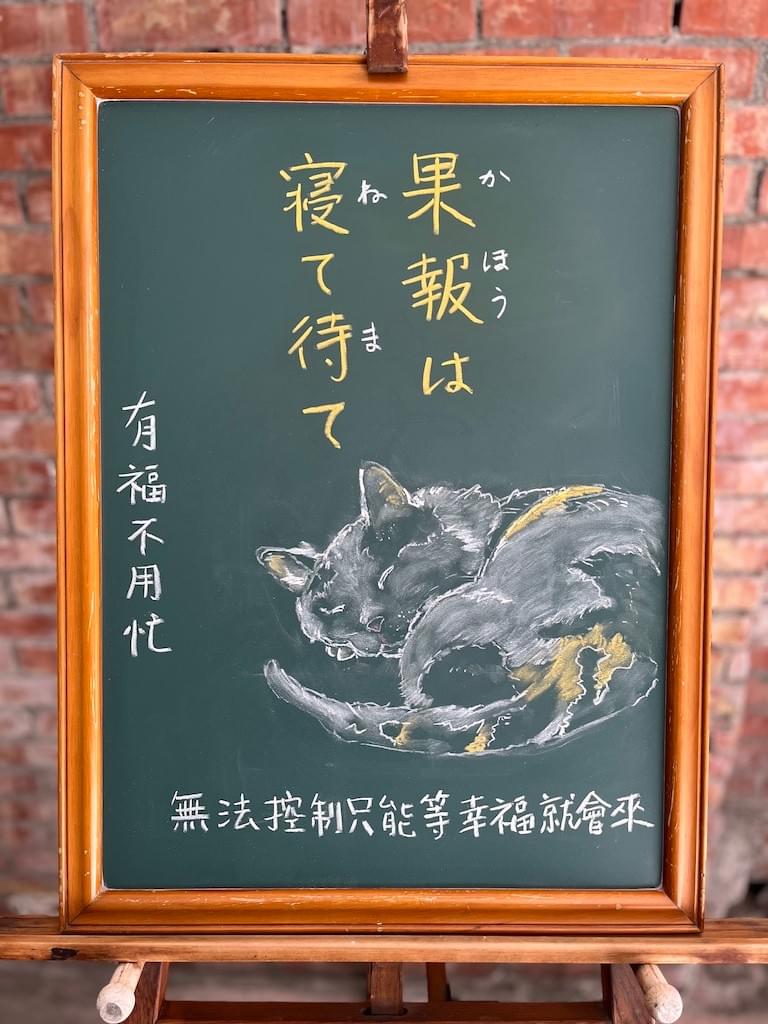 果報は
かほう
寝て待て
ねま
有福不用忙
無法控制只能等幸福就會來